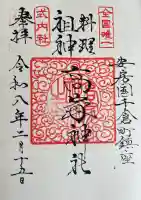 安房国千倉町鎮座
全国唯一
料理
祖神
高家神社
式内社
奉拝
令和八年二月十五日